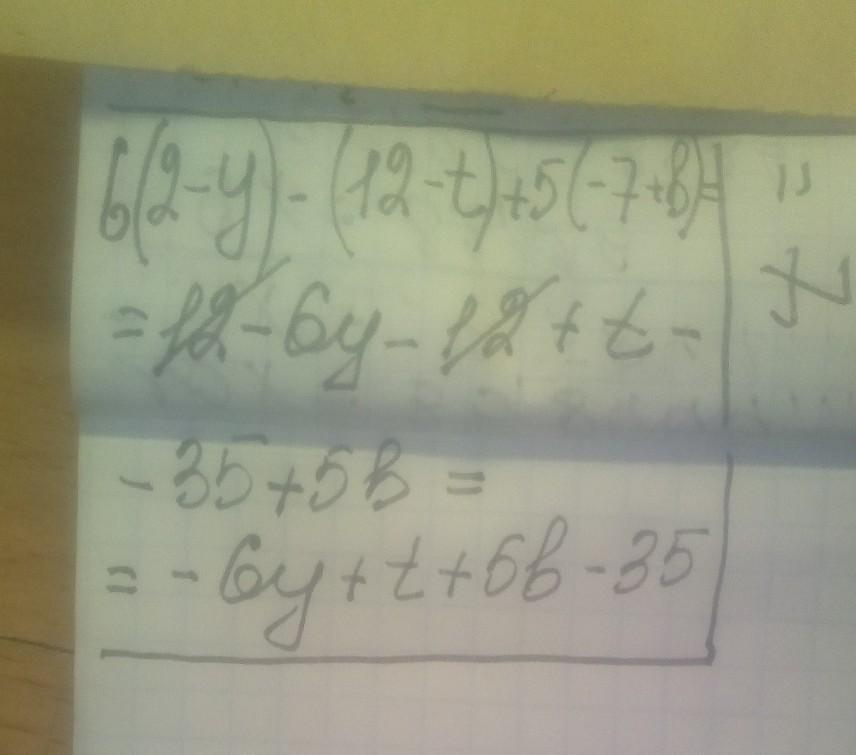 6(2-y)-(12-t)+5(-7+b)=
=12-6y-12+t-
-35+5b=
=-6y+t+5b-35